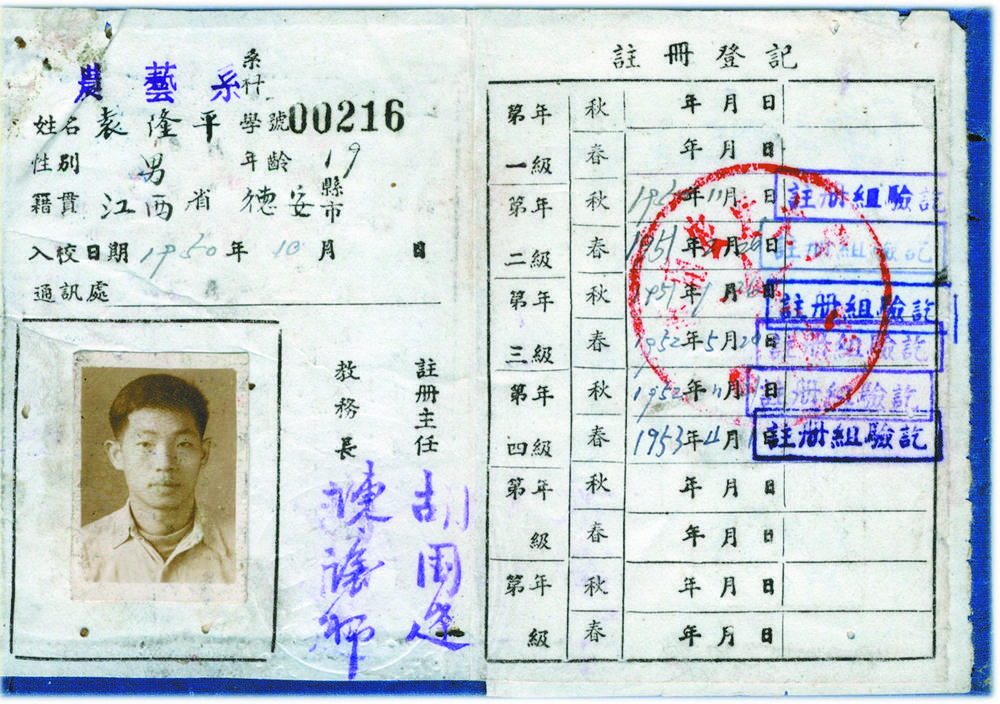 農藝系 系科
姓名 袁隆平 學號 00216
性別 男 年齡 19
籍貫 江西省 德安 縣市
入校日期 1950年 10月 日
通訊處
註冊主任 胡
教務長 陳
註冊登記
第一年級 秋 年 月 日
春 年 月 日
第二年級 秋 1950年11月 日 註冊組驗訖
春 1951年 月29日 註冊組驗訖
第三年級 秋 1951年 月 日 註冊組驗訖
春 1952年5月29日 註冊組驗訖
第四年級 秋 1952年11月 日 註冊組驗訖
春 1953年4月 日 註冊組驗訖
第 年級 秋 年 月 日
春 年 月 日
第 年級 秋 年 月 日
春 年 月 日